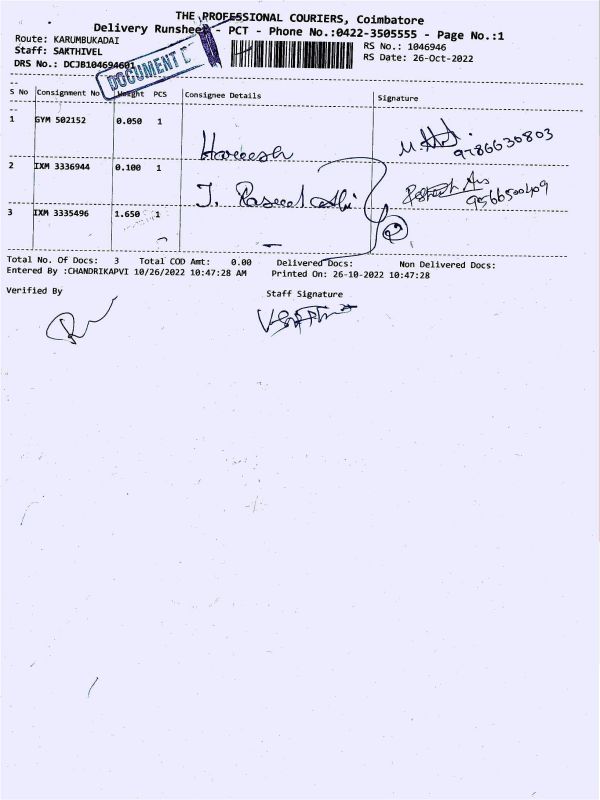 THE PROFESSIONAL COURIERS, Coimbatore
Delivery Runsheet - PCT - Phone No.:0422-3505555 - Page No.:1
Route: KARUMBUKADAI
RS No.: 1046946
Staff: SAKTHIVEL
RS Date: 26-Oct-2022
DRS No.: DCJB104694601
DOCUMENT
S No Consignment No Weight PCS Consignee Details Signature
1 GYM 502152 0.050 1
Hareesh 9786630803
2 IXM 3336944 0.100 1
J. 9566500409
3 IXM 3335496 1.650 1
Total No. Of Docs: 3 Total COD Amt: 0.00 Delivered Docs: Non Delivered Docs:
Entered By :CHANDRIKAPVI 10/26/2022 10:47:28 AM Printed On: 26-10-2022 10:47:28
Verified By Staff Signature